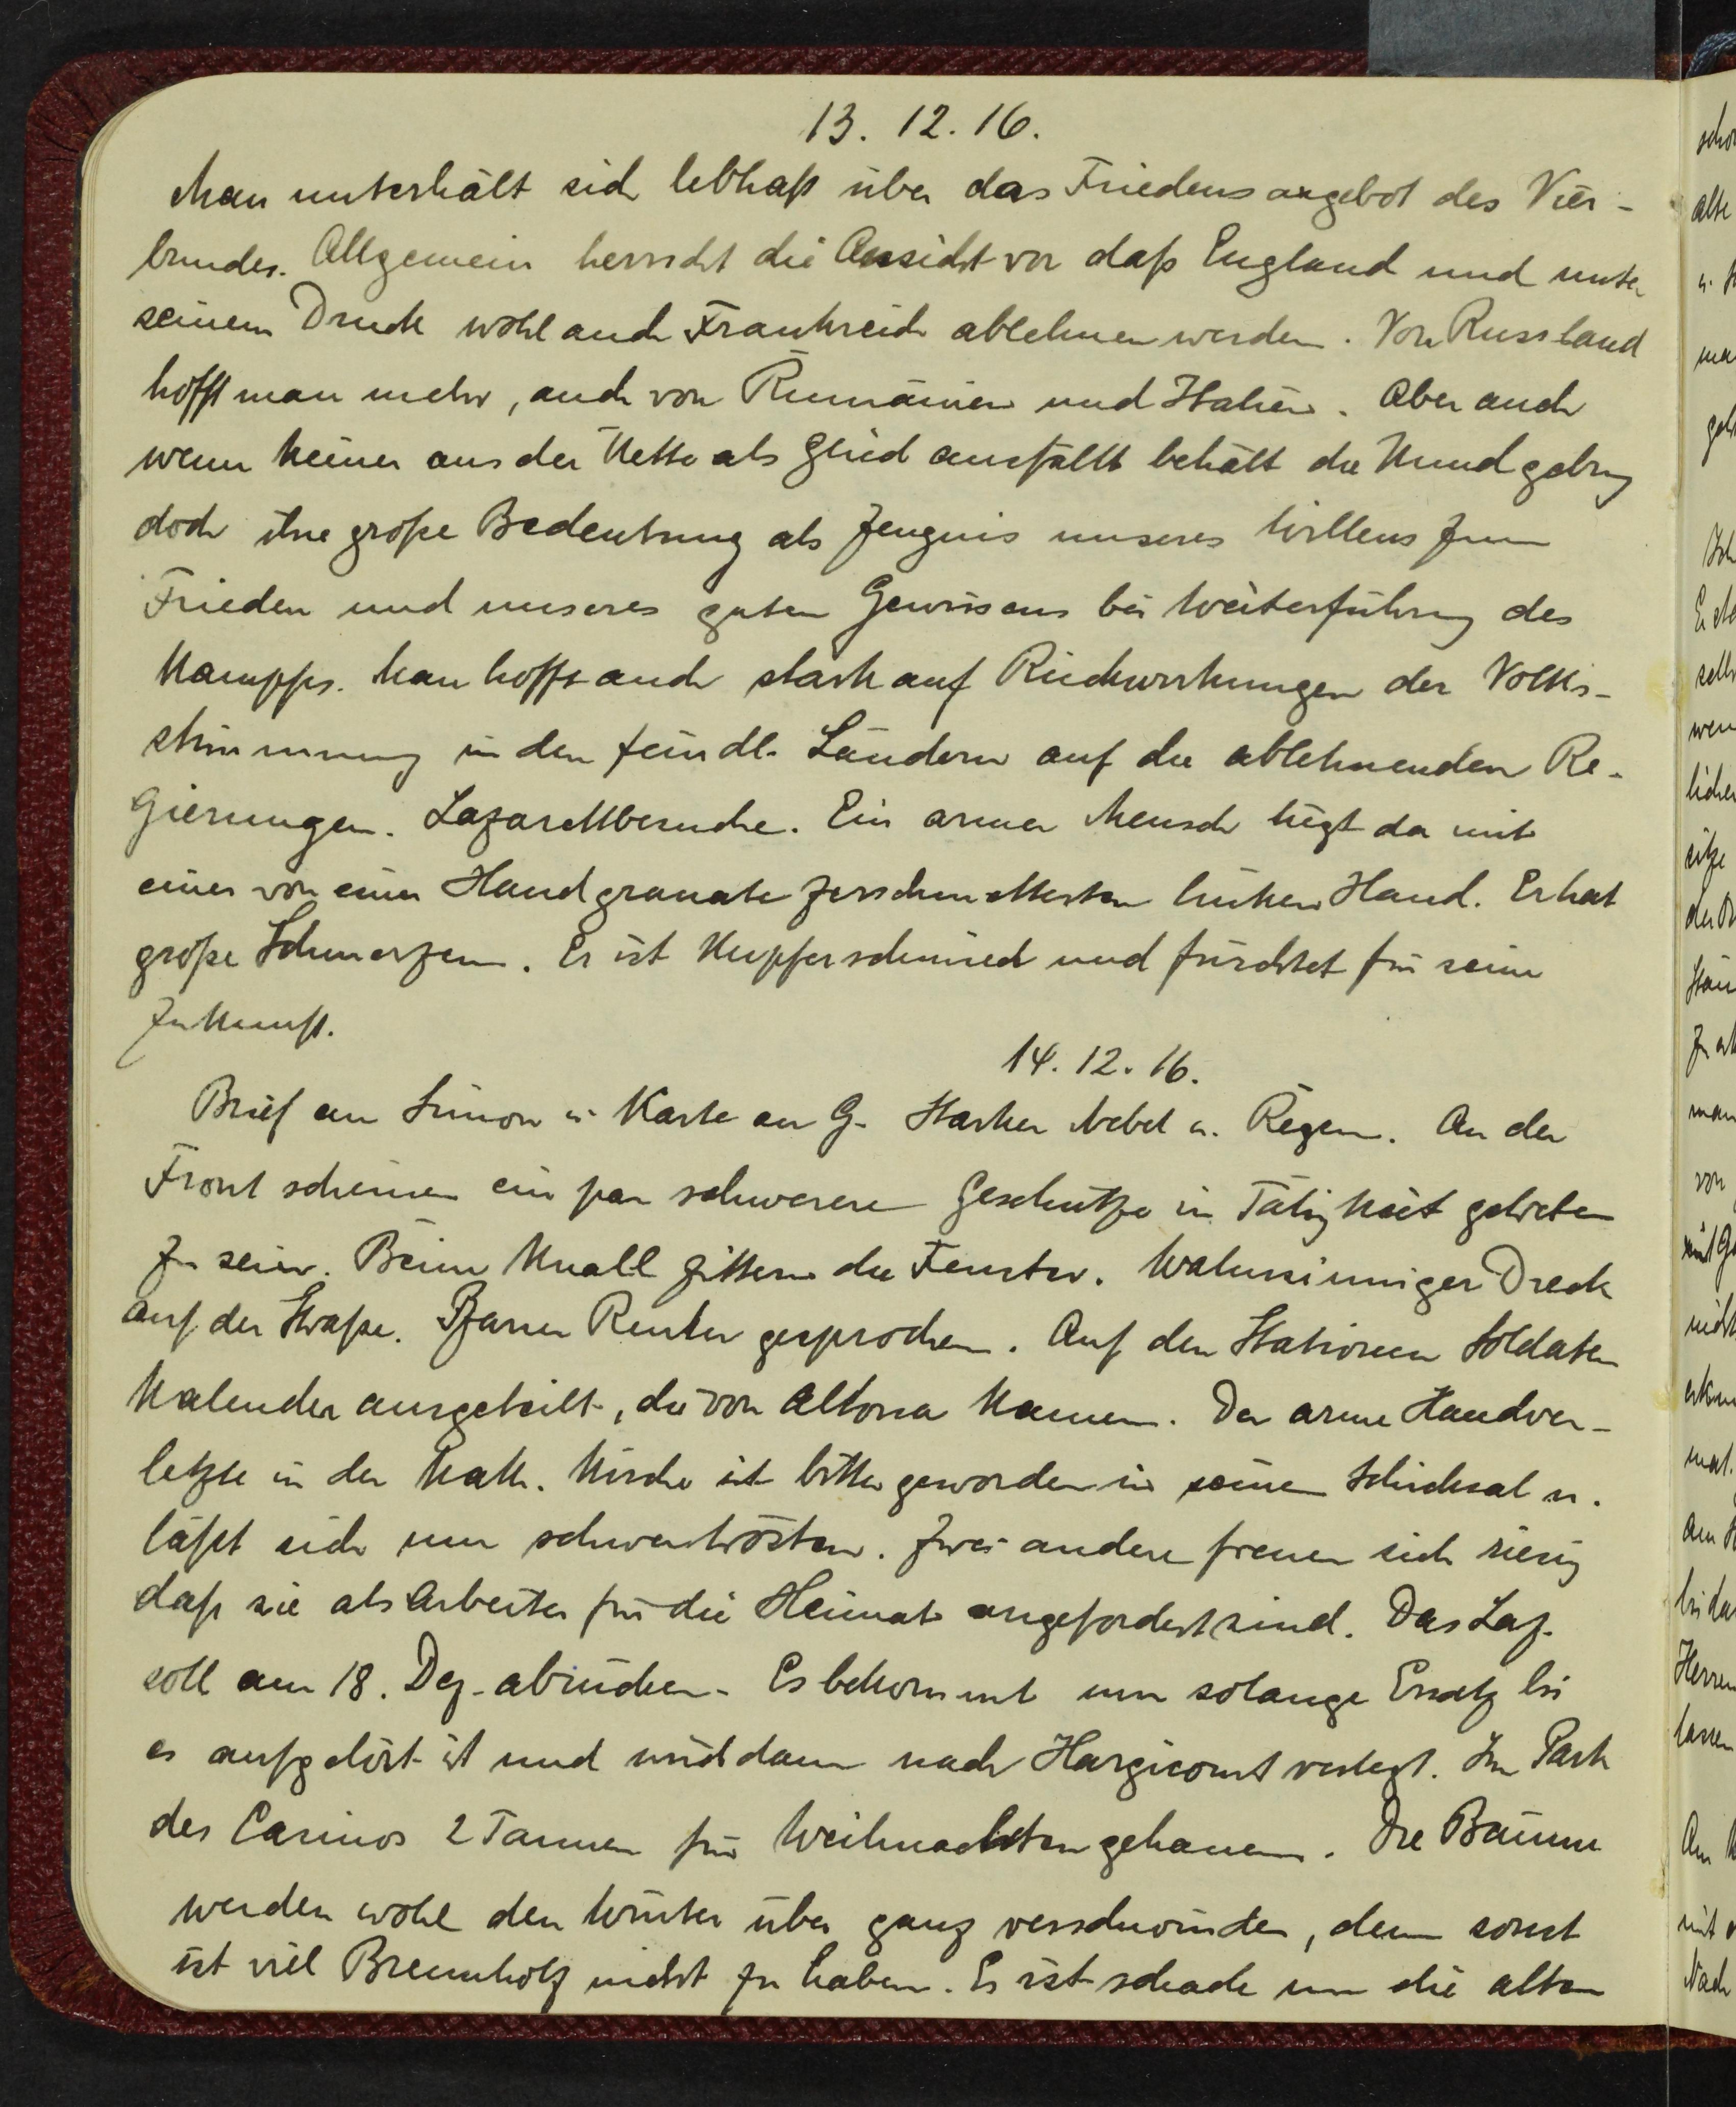 13. 12. 16.
Man unterhält sich lebhaft über das Friedensangebot des Vier-
bundes. Allgemein herrscht die Ansicht vor daß England und unter
seinem Druck wohl auch Frankreich ablehnen werden. Von Russland
hofft man mehr, auch von Rumänien und Italien. Aber auch
wenn keiner aus der Kette als Glied ausfällt behält die Kundgebung
doch ihre große Bedeutung als Zeugnis unseres Willens zum
Frieden und unseres guten Gewissens bei Weiterführung des
Kampfes. Man hofft auch stark auf Rückwirkungen der Volks-
stimmung in den feindl. Ländern auf die ablehnenden Re-
gierungen. Lazarettbesuche. Ein armer Mensch liegt da mit
einer von einer Handgranate zerschmetterten linken Hand. Er hat
große Schmerzen. Er ist Kupferschmied und fürchtet für seine
Zukunft.
14. 12. 16.
Brief an Simon u. Karte an G. Starker Nebel u. Regen. An der
Front scheinen ein par schwerere Geschütze in Tätigkeit getreten
zu sein. Beim Knall zittern die Fenster. Wahnsinniger Dreck
auf der Straße. Pfarrer Reuter gesprochen. Auf den Stationen Soldaten
Kalender ausgeteilt, die von Altona kamen. Der arme Handver-
letzte in der Kath. Kirche ist bitter geworden in seinem Schicksal u.
läßt sich nur schwer trösten. Zwei andere freuen sich riesig
daß sie als Arbeiter für die Heimat angefordert sind. Das Laz.
soll am 18. Dez. abrücken. Es bekommt nur solange Ersatz bis
es aufgelöst ist und wird dann nach Hargicourt verlegt. Im Park
des Casinos 2 Tannen für Weihnachten gehauen. Die Bäume
werden wohl den Winter über ganz verschwinden, denn sonst
ist viel Brennholz nicht zu haben. Es ist schade um die alten